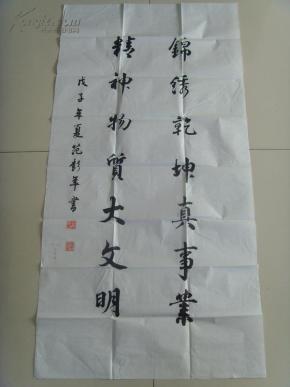 錦绣乾坤真事業
精神物質大文明
戊子年夏范彭年書